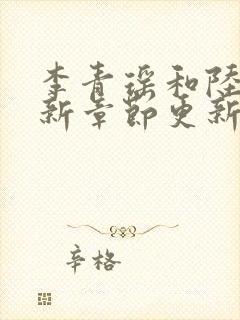 李青瑶和陸
新章節更新
辛格